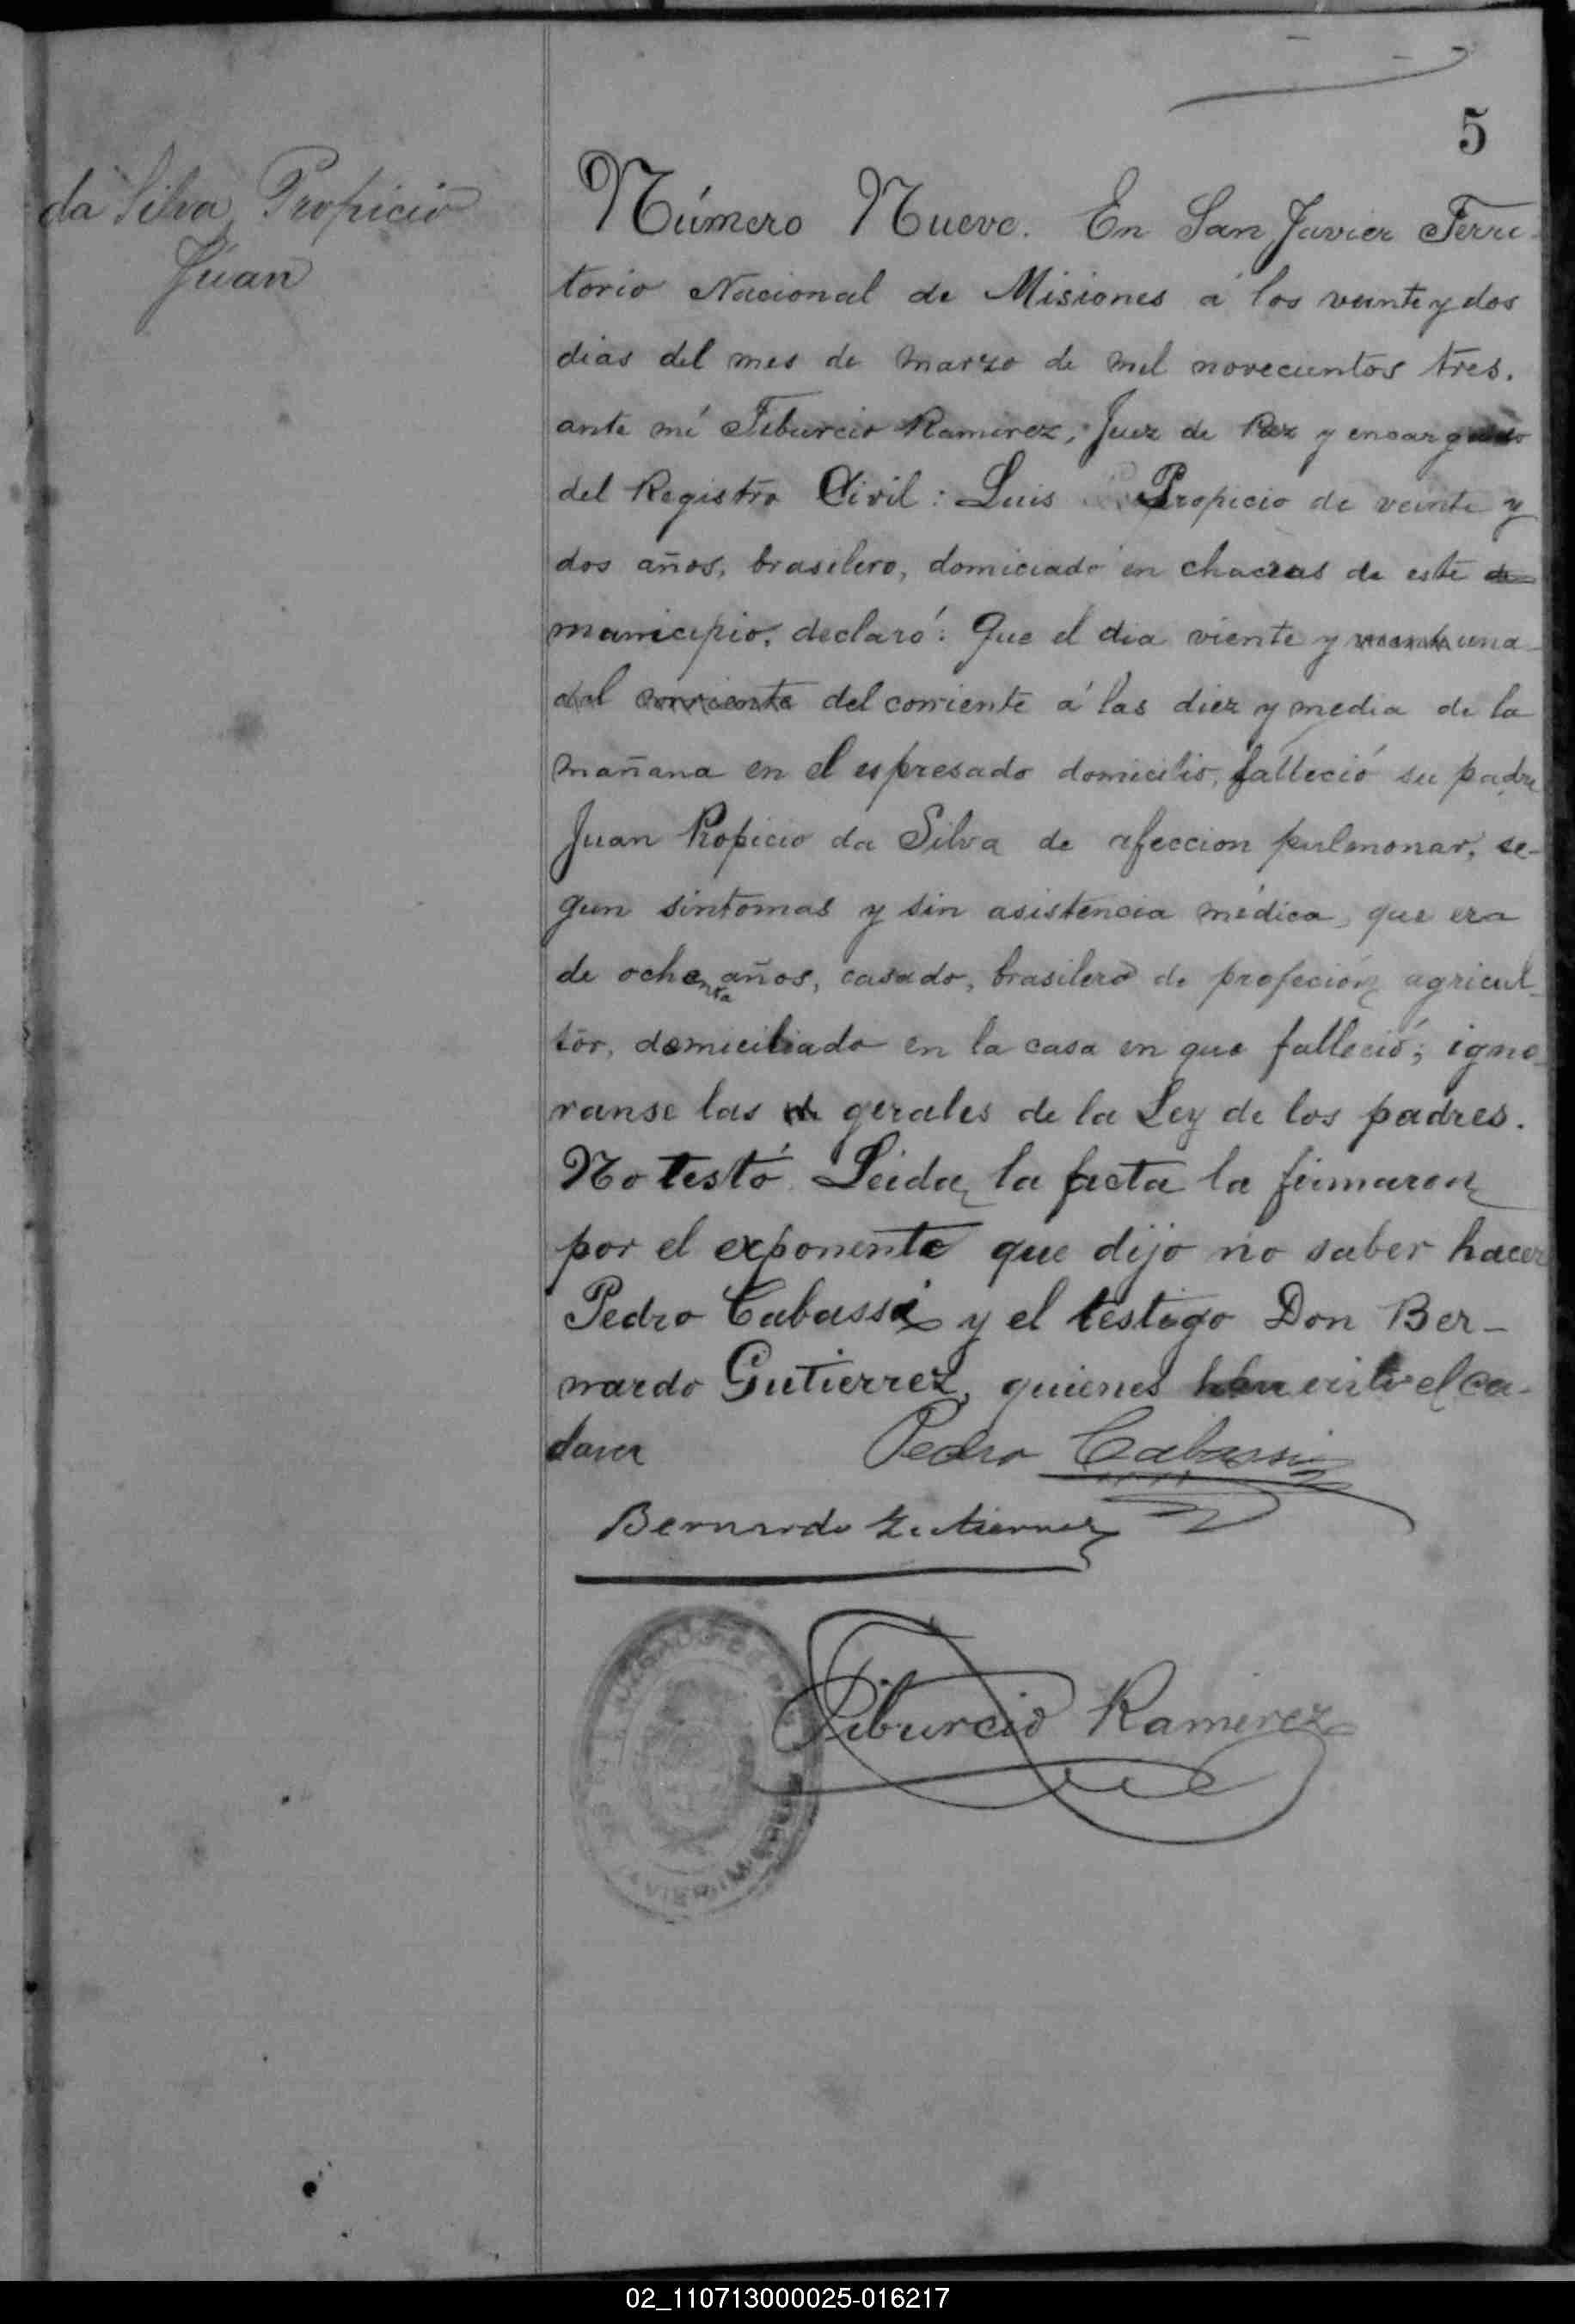 5
da Silva Propicio
Juan
Número Nueve. En San Javier Terri-
torio Nacional de Misiones á los veinte y dos
dias del mes de marzo de mil novecientos tres.
ante mí Tiburcio Ramirez, Juez de Paz y encargado
del Registro Civil: Luis Propicio de veinte y
dos años, brasilero, domiciado en chacras de este de
municipio, declaró: Que el dia viente y una
del corriente del corriente á las diez y media de la
mañana en el espresado domicilio, falleció su padre
Juan Propicio da Silva de afeccion pulmonar, se-
gun sintomas y sin asistencia médica, que era
de ochenta años, casado, brasilero de profeción agricul-
tor, domiciliado en la casa en que falleció; igno-
ranse las gerales de la Ley de los padres.
No testó. Leida la facta la firmaron
por el exponente que dijo no saber hacer
Pedro Cabassi y el testigo Don Ber-
nardo Gutierrez, quienes han visto el ca-
daver
Pedro Cabassi
Bernardo Gutierrez
Tiburcio Ramirez
JUZGADO DE PAZ
02_110713000025-016217